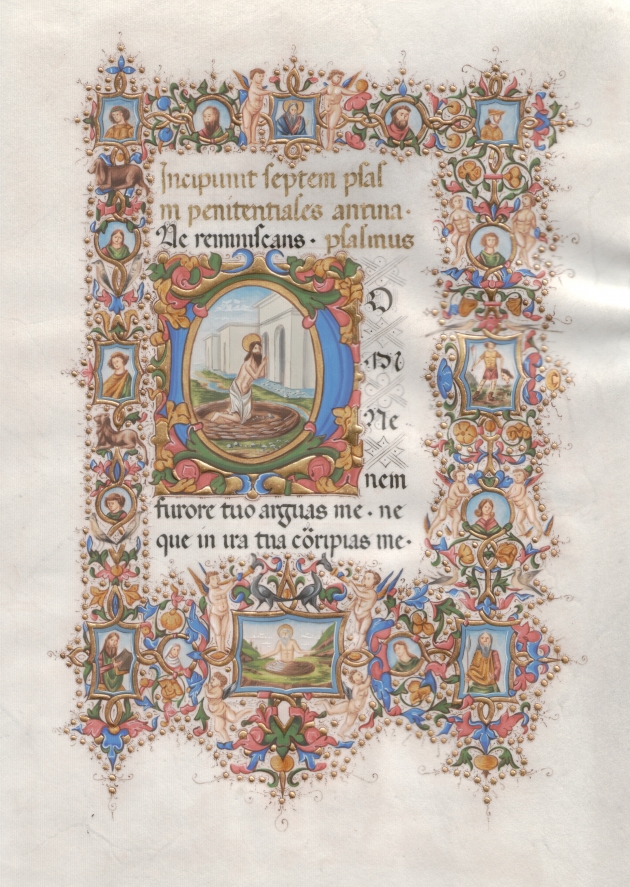 Incipiunt septem psal
m penitentiales antina·
Ne reminiscans· psalmus
DO
mi
Ne
nem
furore tuo arguas me· ne
que in ira tua cöripias me·